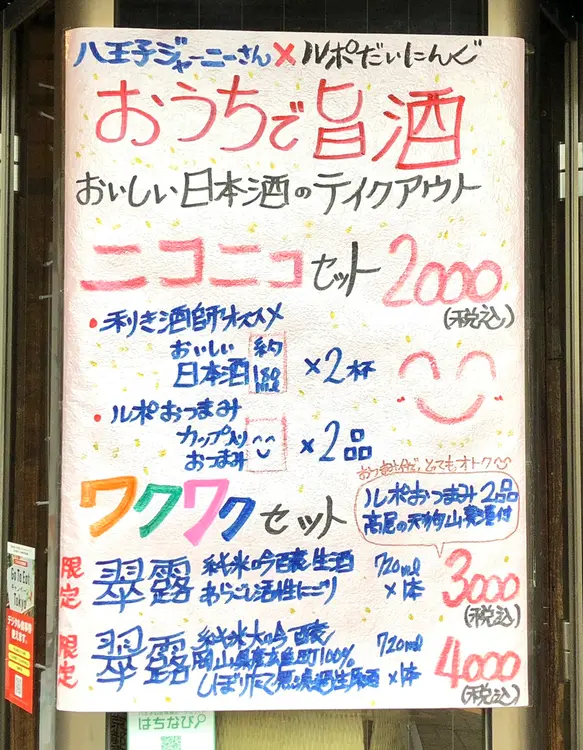 八王子ジャーニーさん×ルポだいにんぐ
おうちで旨酒
おいしい日本酒のテイクアウト
ニコニコセット 2000
(税込)
・利き酒師オススメ
おいしい日本酒 約180ml ×2杯
・ルポおつまみ
カップ入りおつまみ ×2品
とってもオトク
ワクワクセット
ルポおつまみ2品
高尾の天狗山葵漬付
限定 翠露 純米吟醸生酒
あらごし活性にごり
720ml×1本 3000
(税込)
限定 翠露 純米大吟醸
岡山県産雄町100%
しぼりたて無濾過生原酒
720ml×1本 4000
(税込)
Go To Eat
キャンペーン
Tokyo
デジタル食事券
使えます。
はちなび